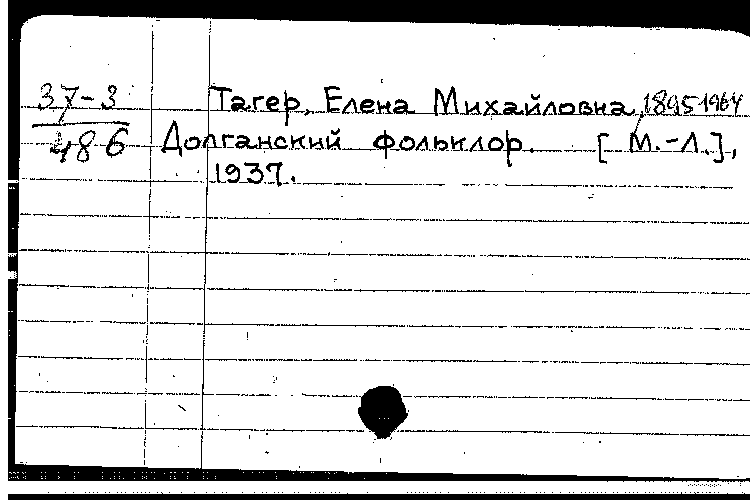 37-3 Тагер, Елена Михайловна, 1895-1964
486 Долганский фольклор. [М.-Л.],
1937.